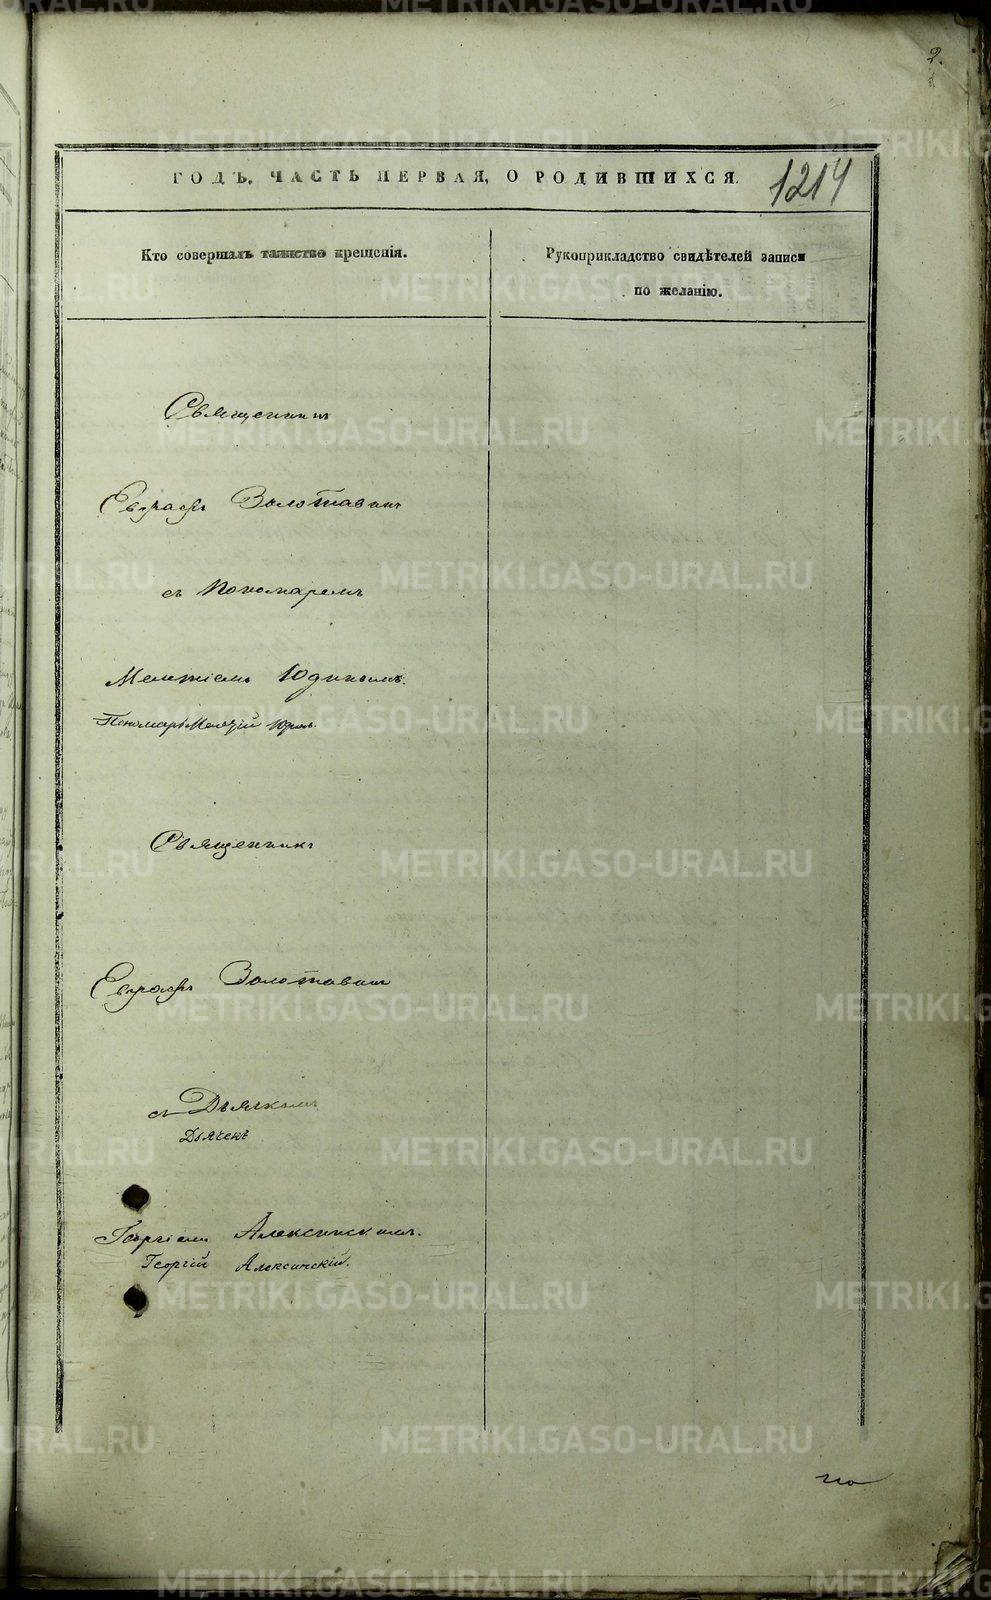 2.
1214
ГОДЪ. ЧАСТЬ ПЕРВАЯ, О РОДИВШИХСЯ.
Кто совершалъ таинство крещенія.
Рукоприкладство свидѣтелей записи
по желанію.
Священникъ
Евграфъ Золотавинъ
съ Пономаремъ
Мелетіемъ Юдинымъ.
Пономарь Мелетій Юдинъ.
Священникъ
Евграфъ Золотавинъ
съ Дьячкомъ
Дьячекъ
Георгіемъ Алексинскимъ.
Георгій Алексинскій.
METRIKI.GASO-URAL.RU